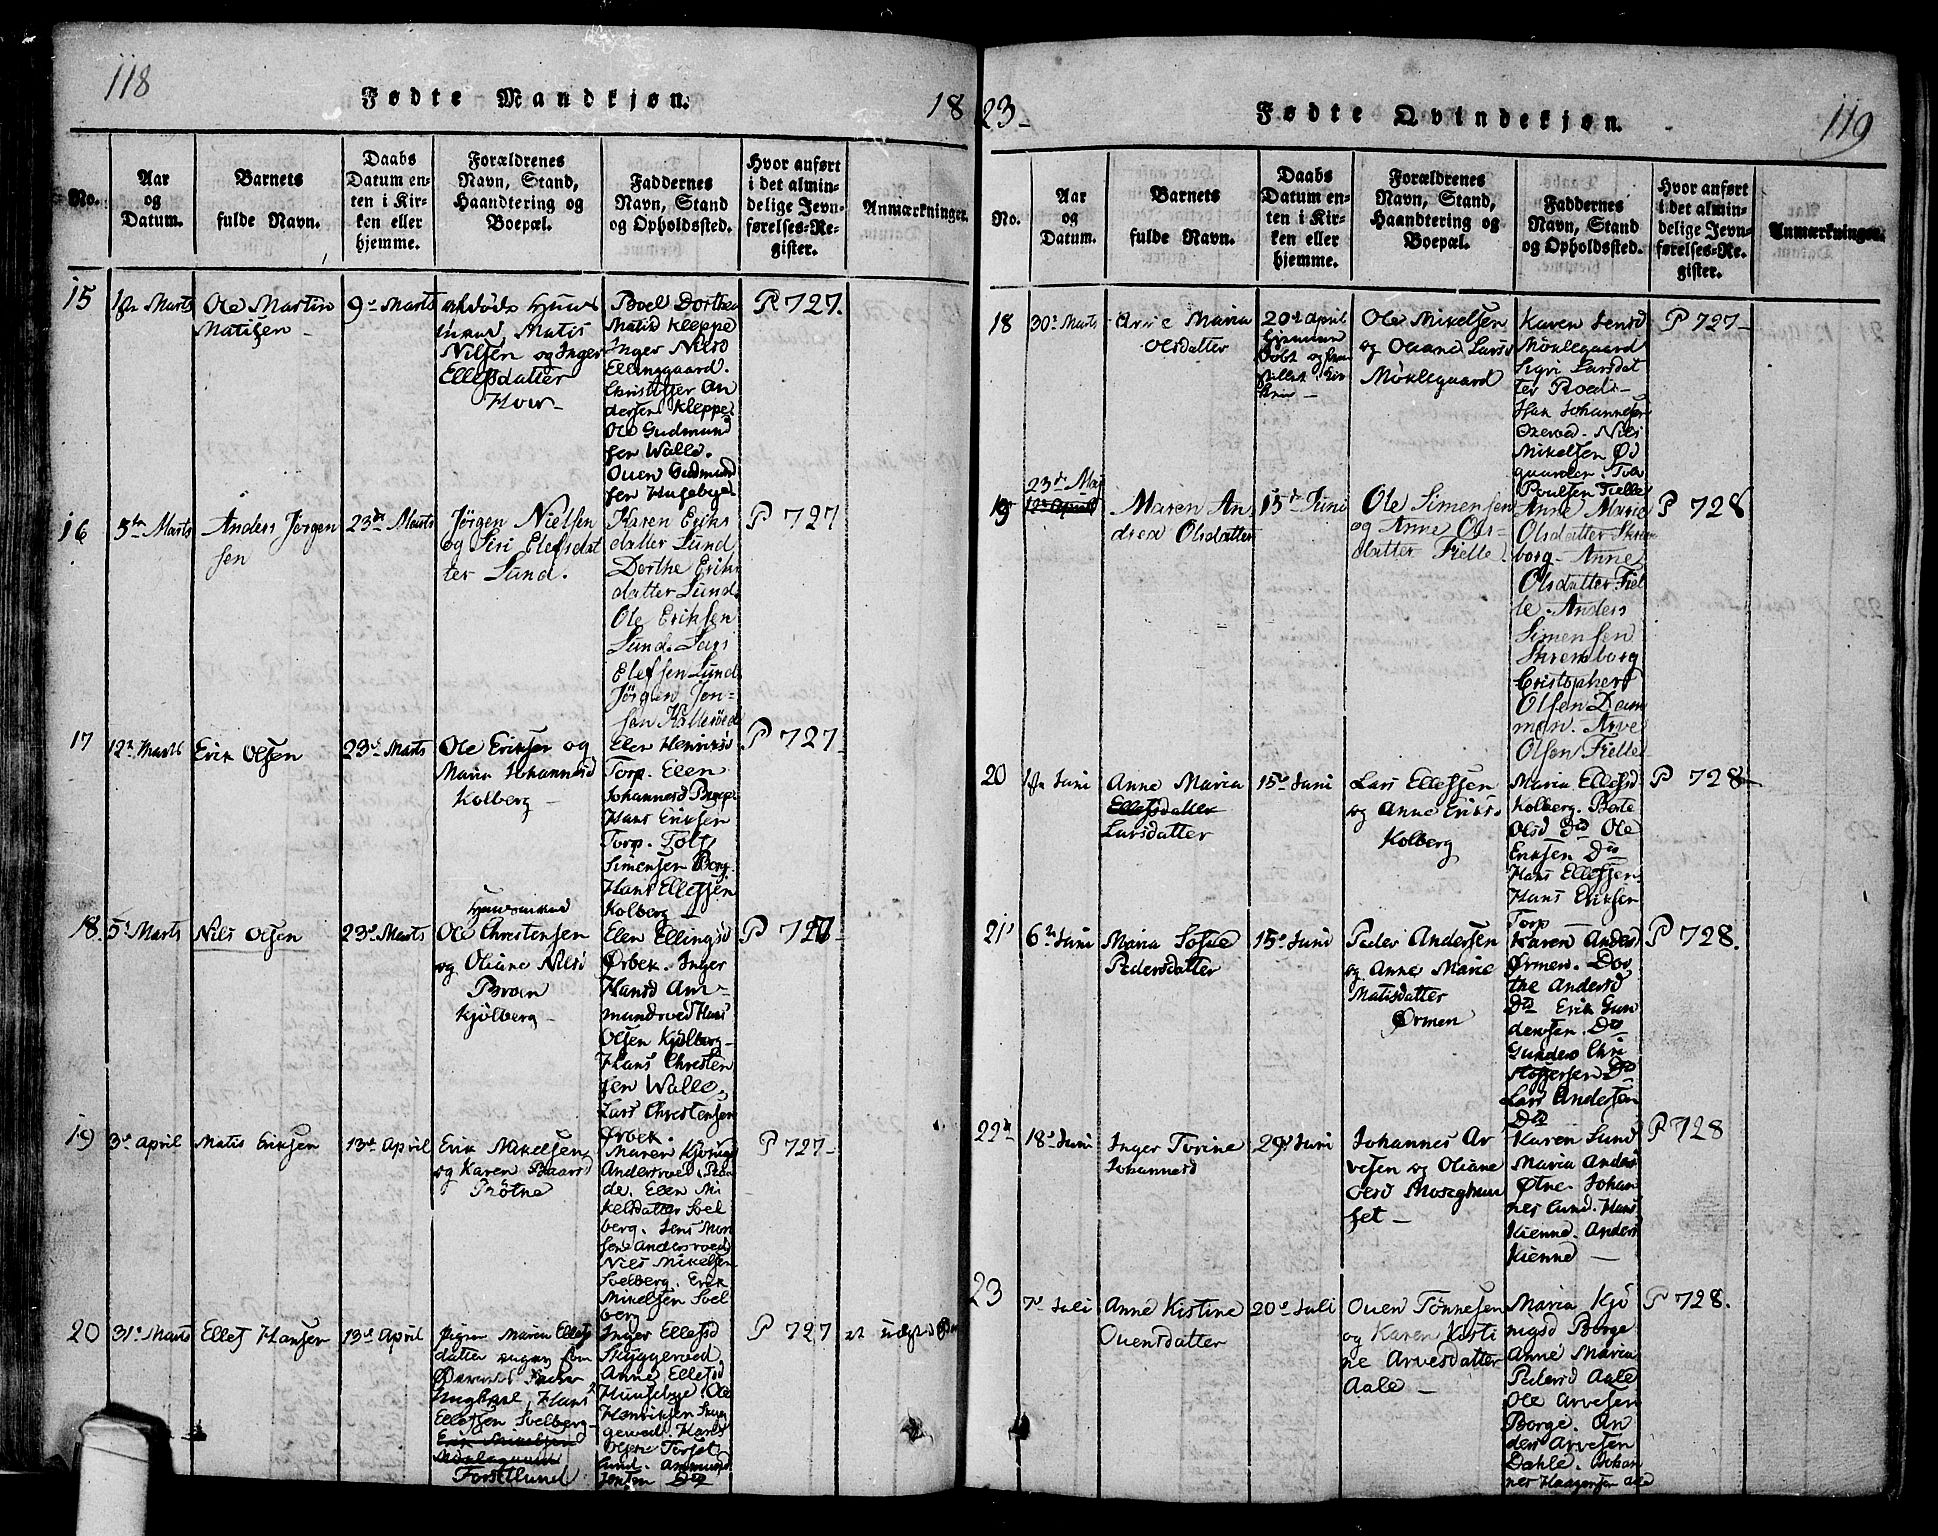 118
Fødte Mandkjøn.
18
No.
Aar
og
Datum.
Barnets
fulde Navn.
Daabs
Datum en-
ten i Kir-
ken eller
hjemme.
Forældrenes
Navn, Stand,
Haandtering og
Boepæl.
Faddernes
Navn, Stand
og Opholdssted.
Hvor anført
i det almin-
delige Jevn-
førelses-Re-
gister.
Anmærkninger.
15
1ste Marts
Ole Martin
Matisen
9de Marts
Matis
Nilsen og Inger
Ellefsdatter
Boel Dorthea
Matisd Kleppe
Inger Nielsd
Ellinggaard.
Christoffer An
dersen Kleppe
Ole Gudmund
sen Walle.
Ouen Gudmund
sen Husebye
P 727.
16
5te Marts
Anders Jörgen
sen
23de Marts
Jörgen Nielsen
og Siri Elefsdat
ter Lund.
Karen Eriks
datter Lund
Dorthe Eriks
datter Lund.
Ole Eriksen
Lund. Lars
Elefsen Lund
Jörgen Jen-
sen Kallerøed
P 727
17
12te Marts
Erik Olsen
23de Marts
Ole Eriksen og
Maria Johannesd
Kolberg
Elen Henriksd
Torp. Elen
Johannesd Berge
Hans Eriksen
Torp. Tolf
Simensen Berg.
Hans Ellefsen
Kolberg
P 727
18.
5te Marts
Niels Olsen
23de Marts
Huusmand
Ole Christensen
og Oliane Nielsd
Kjølberg
Elen Ellingsd
Ørbek. Inger
Hansd Am-
mundrød Hans
Olsen Kjølberg
Hans Christen
sen Walle.
Lars Christensen
Ørbek.
P 727
19
3de April
Matis Eriksen
13de April
Erik Mikelsen
og Karen Baardsd
Trötne
Maren Kjönigsd
Andersroed
de. Elen Mi
kelsdatter Soel
berg. Jens Mor
sen Andersroed
Niels Mikelsen
Soelberg. Erik
Mikelsen Soel
berg
P 727
20
31te Marts
Ellef Hansen
13de April
Pigen Maria Ellefs
datter
Ungkarl, Hans
Ellefsen Soelberg
Inger Ellefsd
Skyggeroed
Anne Ellefsd
Huusebye. Ole
Henriksen Skyg
geroed. Hans
Olsen Torset
lund. Ammund
Jensen Do
P 727
23
Fødte Qvindekjøn.
119
No.
Aar
og
Datum.
Barnets
fulde Navn.
Daabs
Datum en-
ten i Kir-
ken eller
hjemme.
Forældrenes
Navn, Stand,
Haandtering og
Boepæl.
Faddernes
Navn, Stand
og Opholdssted.
Hvor anført
i det almin-
delige Jevn-
førelses-Re-
gister.
Anmærkninger.
18
30te Marts
Anne Maria
Olsdatter
20de April
Ole Mikelsen
og Oliane Larsd
Möklegaard
Karen Jensd
Möklegaard
Sigri Larsdat
ter Roed
Johannesen
Niels
Mikelsen Ød
gaarden. Tov
Poulsen Fielle
P 727
19
23de Mai
12te April
Maren An
drea Olsdatter
15de Juni
Ole Simensen
og Anne Ols-
datter Fielle.
Anne Marie
Olsdatter Skrem
borg. Anne
Olsdatter Fiel
le. Anders
Simensen
Skremborg
Cristopher
Olsen Dam
men. Arve
Olsen Fielle
P 728
20
1ste Juni
Anne Maria
Ellefsdatter
Larsdatter
15de Juni
Lars Ellefsen
og Anne Eriksd
Kolberg
Maria Ellefsd
Kolberg. Berte
Olsd Do Ole
Eriksen Do
Hans Ellefsen
Hans Eriksen
Torp
P 728
21
6te Juni
Maria Sofie
Pedersdatter
15de Juni
Peder Andersen
og Anne Marie
Matisdatter
Ørmen
Karen Andersd
Ørmen. Dor
the Andersd
Do Erik Gun
dersen. Do
Gunder Chri
stoffersen Do
Lars Andersen
Do
P 728.
22
18de Juni
Inger Torine
Johannesd
29de Juni
Johannes Ar
vesen og Oliane
Olsd Moseghuu
set
Karen Lund
Maria Andersd
Øtne. Johan
nes Lund. Hans
Kienne. Anders
Kienne
P 728
23
7de Juli
Anne Kistine
Ouensdatter
20de Juli
Ouen Tönnesen
og Karen Kisti
ne Arvesdatter
Aale
Maria Kjö
nigsd Borge
Anne Maria
Pedersd Aale
Ole Arvesen
Borge. An
ders Arvesen
Dahle. Johan
nes Haagensen Aale
P 728.